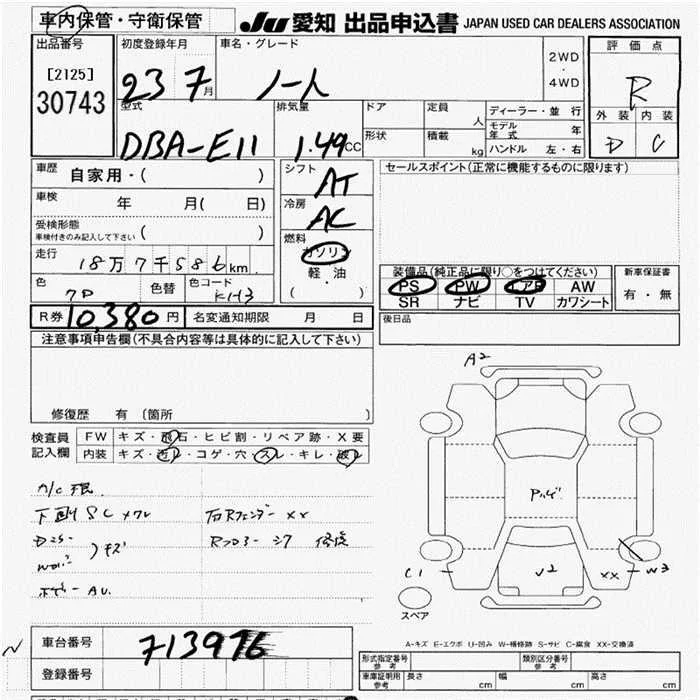 車内保管・守衛保管 JU 愛知 出品申込書 JAPAN USED CAR DEALERS ASSOCIATION
出品番号 初度登録年月 車名・グレード 2WD ・ 4WD 評価点
[2125] 23 7月 ノート R
30743 外装 内装
型式 排気量 ドア 定員 人 ディーラー・並行 D C
DBA-E11 1.49CC 形状 積載 kg モデル年式 年
ハンドル 左・右
車歴 自家用・( ) シフト AT セールスポイント(正常に機能するものに限ります)
車検 年 月( 日) 冷房 AC
受検形態 車検付きのみ記入して下さい ( ) 燃料 ガソリン
走行 18万7千586km 軽・油 装備品(純正品に限り○をつけてください) 新車保証書
色 色替 色コード ( ) PS PW エアB AW 有・無
KH3 SR ナビ TV カワシート
R券 10,380円 名変通知期限 月 日 後日品
注意事項申告欄(不具合内容等は具体的に記入して下さい)
修復歴 有 〔箇所 〕
検査員 FW キズ・飛石・ヒビ割・リペア跡・X要
記入欄 内装 キズ・汚レ・コゲ・穴・スレ・キレ・破レ
A2
A/C
下廻りSC 右Rフェンダー XX
キズ Rフロアー 修復
AU
C1 V2 XX W3
スペア
A-キズ E-エクボ U-凹み W-補修跡 S-サビ C-腐食 XX-交換済
車台番号 713976
登録番号
形式指定番号 参考 類別区分番号 参考
車庫証明用 参考 長さ cm 幅 cm 高さ cm